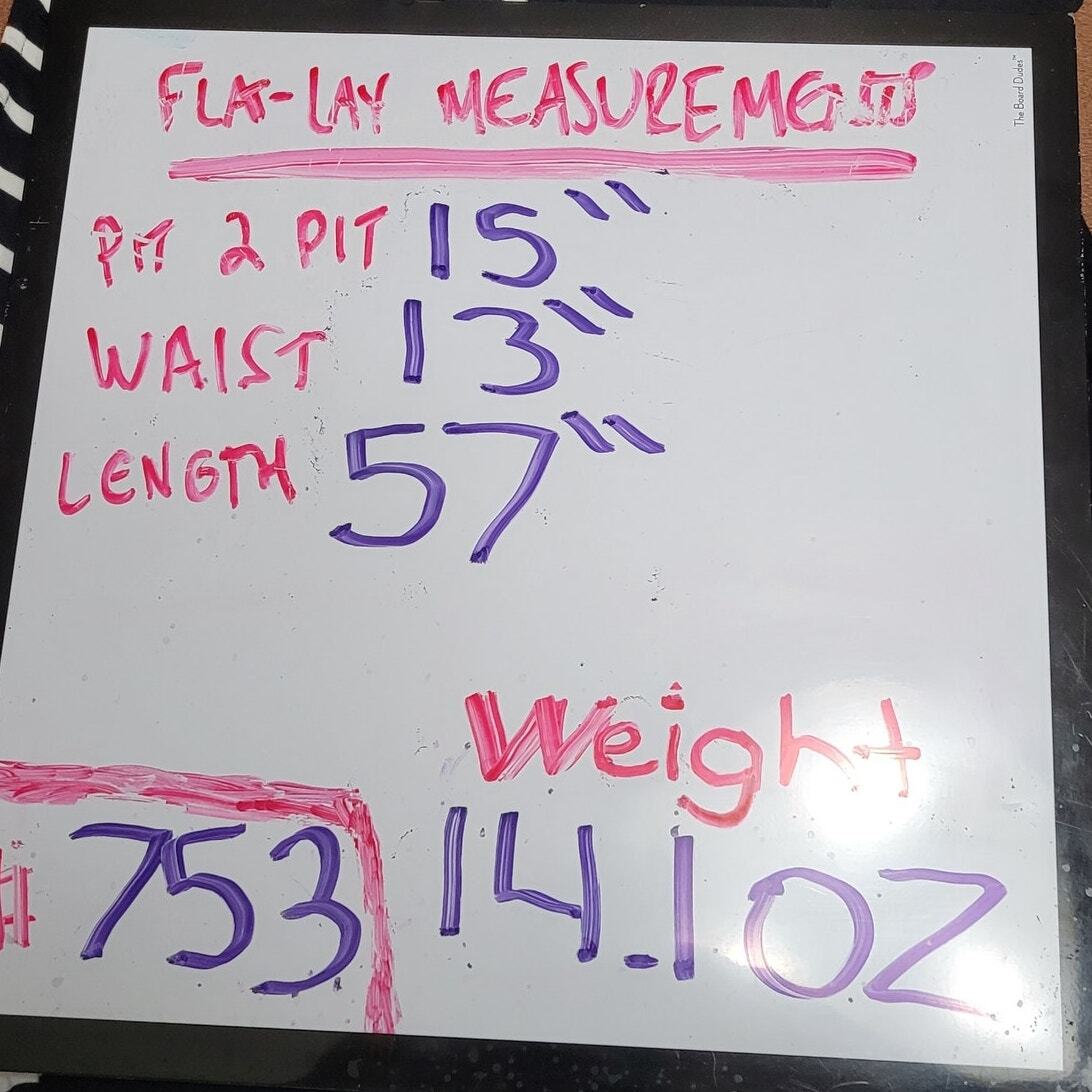 FLA-LAY MEASUREMENT
The Board Dudes™
PIT 2 PIT 15"
WAIST 13"
LENGTH 57"
Weight
# 753
14.1OZ